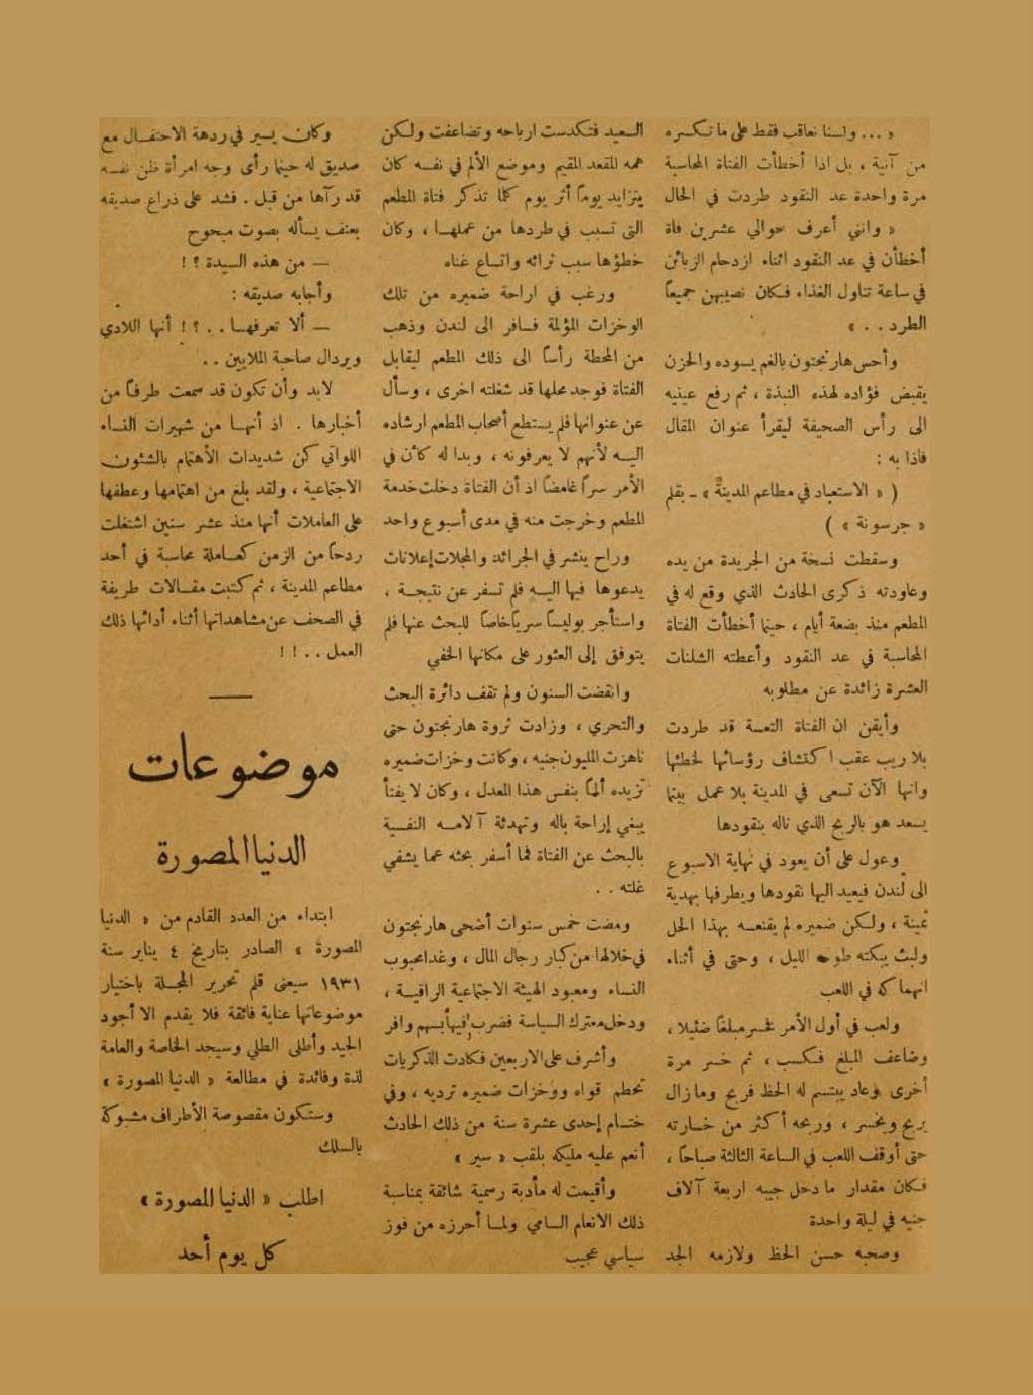 « ... ولسنا نعاقب فقط على ما نكسره
من آنية ، بل اذا أخطأت الفتاة المحاسبة
مرة واحدة عد النقود طردت في الحال
« وانني أعرف حوالي عشرين فاة
أخطأن في عد النقود اثناء ازدحام الزبائن
في ساعة تناول الغذاء فكان نصيبهن جميعاً
الطرد . . »
وأحس هارنجتون بالغم يسوده والحزن
يقبض فؤاده لهذه النبذة ، ثم رفع عينيه
الى رأس الصحيفة ليقرأ عنوان المقال
فاذا به :
( « الاستعباد في مطاعم المدينة » ـ بقلم
« جرسونة » )
وسقطت نسخة من الجريدة من يده
وعاودته ذكرى الحادث الذي وقع له في
المطعم منذ بضعة أيام ، حينما أخطأت الفتاة
المحاسبة في عد النقود وأعطته الشلنات
العشرة زائدة عن مطلوبه
وأيقن ان الفتاة التعسة قد طردت
بلا ريب عقب اكتشاف رؤسائها لخطئها
وانها الآن تسعى في المدينة بلا عمل بينما
يسعد هو بالربح الذي ناله بنقودها
وعول على أن يعود في نهاية الاسبوع
الى لندن فيعيد اليها نقودها ويطرفها بهدية
ثمينة ، ولكن ضميره لم يقنعه بهذا الحل
ولبث يبكته طوال الليل ، وحتى في أثناء
انهماكه في اللعب
ولعب في أول الأمر فخسر مبلغاً ضئيلا ،
وضاعف المبلغ فكسب ، ثم خسر مرة
أخرى وعاد يبتسم له الحظ فربح وما زال
يربح ويخسر ، وربحه أكثر من خسارته
حتى أوقف اللعب في الساعة الثالثة صباحاً ،
فكان مقدار ما دخل جيبه اربعة آلاف
جنيه في ليلة واحدة
وصحبه حسن الحظ ولازمه الجد
السعيد فتكدست ارباحه وتضاعفت ولكن
همه المقعد المقيم وموضع الألم في نفسه كان
يتزايد يوماً أثر يوم كلما تذكر فتاة المطعم
التى تسبب في طردها من عملها ، وكان
خطؤها سبب ثرائه واتساع غناه
ورغب في اراحة ضميره من تلك
الوخزات المؤلمة فسافر الى لندن وذهب
من المحطة رأساً الى ذلك المطعم ليقابل
الفتاة فوجد محلها قد شغلته اخرى ، وسأل
عن عنوانها فلم يستطع أصحاب المطعم ارشاده
اليه لأنهم لا يعرفونه ، وبدا له كأن في
الأمر سراً غامضاً اذ أن الفتاة دخلت خدمة
المطعم وخرجت منه في مدى أسبوع واحد
وراح ينشر في الجرائد والمجلات إعلانات
يدعوها فيها اليه فلم تسفر عن نتيجة ،
واستأجر بوليساً سرياً خاصاً للبحث عنها فلم
يتوفق إلى العثور على مكانها الخفي
وانقضت السنون ولم تقف دائرة البحث
والتحري ، وزادت ثروة هارنجتون حتى
ناهزت المليون جنيه ، وكانت وخزات ضميره
تزيده ألماً بنفس هذا المعدل ، وكان لا يفتأ
يبغي إراحة باله وتهدئة آلامه النفسية
بالبحث عن الفتاة فما أسفر بحثه عما يشفي
غلته . .
ومضت خمس سنوات أضحى هارنجتون
في خلالها من كبار رجال المال ، وغدا محبوب
النساء ومعبود الهيئة الاجتماعية الراقية ،
ودخل معترك السياسة فضرب فيها بسهم وافر
وأشرف على الاربعين فكادت الذكريات
تحطم قواه ووخزات ضميره ترديه ، وفي
ختام إحدى عشرة سنة من ذلك الحادث
أنعم عليه مليكه بلقب « سير »
وأقيمت له مأدبة رسمية شائقة بمناسبة
ذلك الانعام السامي ولما أحرزه من فوز
سياسي عجيب
وكان يسير في ردهة الاحتفال مع
صديق له حينما رأى وجه امرأة ظن نفسه
قد رآها من قبل . فشد على ذراع صديقه
بعنف يسأله بصوت مبحوح
— من هذه السيدة ؟ !
وأجابه صديقه :
— ألا تعرفها . . ؟ ! أنها اللادي
ويردال صاحبة الملايين . .
لابد وأن تكون قد سمعت طرفاً من
أخبارها . اذ أنها من شهيرات النساء
اللواتي كن شديدات الأهتمام بالشئون
الاجتماعية ، ولقد بلغ من اهتمامها وعطفها
على العاملات أنها منذ عشر سنين اشتغلت
ردحاً من الزمن كعاملة محاسبة في أحد
مطاعم المدينة ، ثم كتبت مقالات طريفة
في الصحف عن مشاهداتها أثناء أدائها ذلك
العمل . . ! !
موضوعات
الدنيا المصورة
ابتداء من العدد القادم من « الدنيا
المصورة » الصادر بتاريخ ٤ يناير سنة
١٩٣١ سيعنى قلم تحرير المجلة باختيار
موضوعاتها عناية فائقة فلا يقدم الا أجود
الجيد وأطلى الطلي وسيجد الخاصة والعامة
لذة وفائدة في مطالعة « الدنيا المصورة »
وستكون مقصوصة الأطراف مشبوكة
بالسلك
اطلب « الدنيا المصورة »
كل يوم أحد